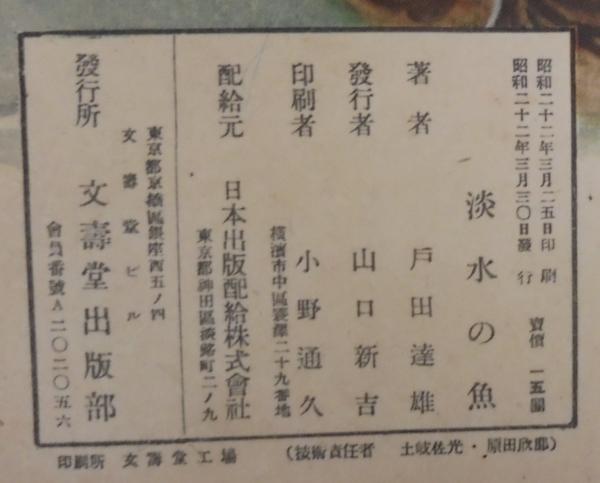 昭和二十二年三月二五日印刷
昭和二十二年三月三〇日發行
賣價 一五圓
淡水の魚
著者 戸田達雄
發行者 山口新吉
印刷者 小野通久
橫濱市中區蓑澤二十九番地
配給元 日本出版配給株式會社
東京都神田區淡路町二ノ九
東京都京橋區銀座西五ノ四
文壽堂ビル
發行所 文壽堂出版部
會員番號A二〇二〇五六
(技術責任者 土岐佐光・原田欣郎)
印刷所 文壽堂工場